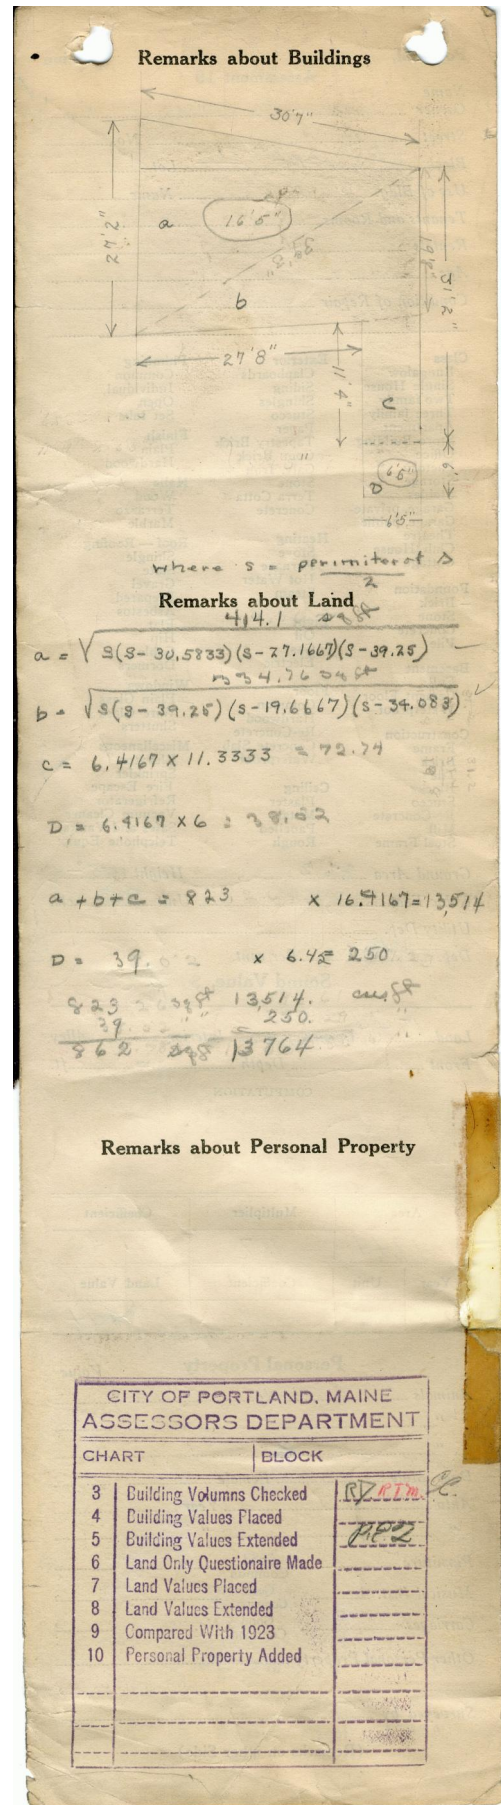 Remarks about Buildings
30'7"
27'2"
a
16'5"
39'3"
19'8"
31'2"
b
27'8"
11'4"
c
6'
6'5"
D
6'5"
where s = perimiter of Δ
2
Remarks about Land
414.1 sq ft
a = √S(S-30.5833)(S-27.1667)(S-39.25)
334.76 sq ft
b = √S(S-39.25)(S-19.6667)(S-34.083)
c = 6.4167 x 11.3333 = 72.74
D = 6.4167 x 6 = 38.52
a + b + c = 823 x 16.4167 = 13,514
D = 39. x 6.45 = 250
823 sq ft 13,514. cu ft
39. 250.
862 sq ft 13764
Remarks about Personal Property
CITY OF PORTLAND, MAINE
ASSESSORS DEPARTMENT
CHART BLOCK
3 Building Volumns Checked RTM.
4 Building Values Placed
5 Building Values Extended
6 Land Only Questionaire Made
7 Land Values Placed
8 Land Values Extended
9 Compared With 1923
10 Personal Property Added